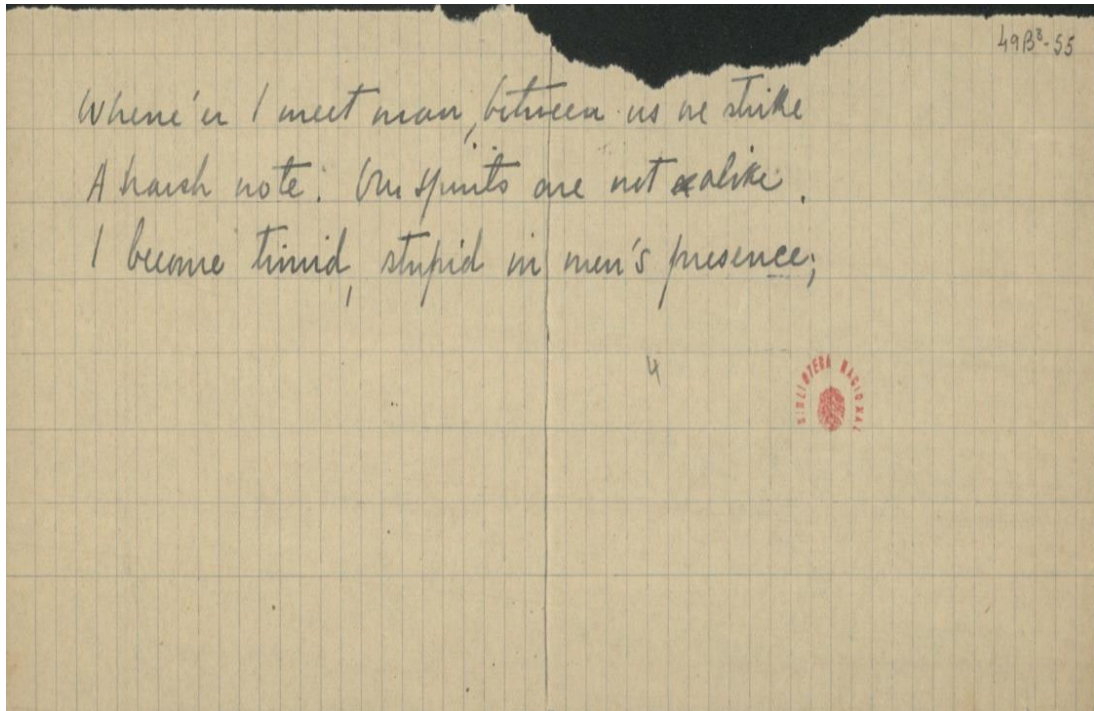 49B³-55
Whene'er I meet man, between us we strike
A harsh note. Our spirits are not alike.
I become timid, stupid in men's presence;
4
BIBLIOTECA NACIONAL